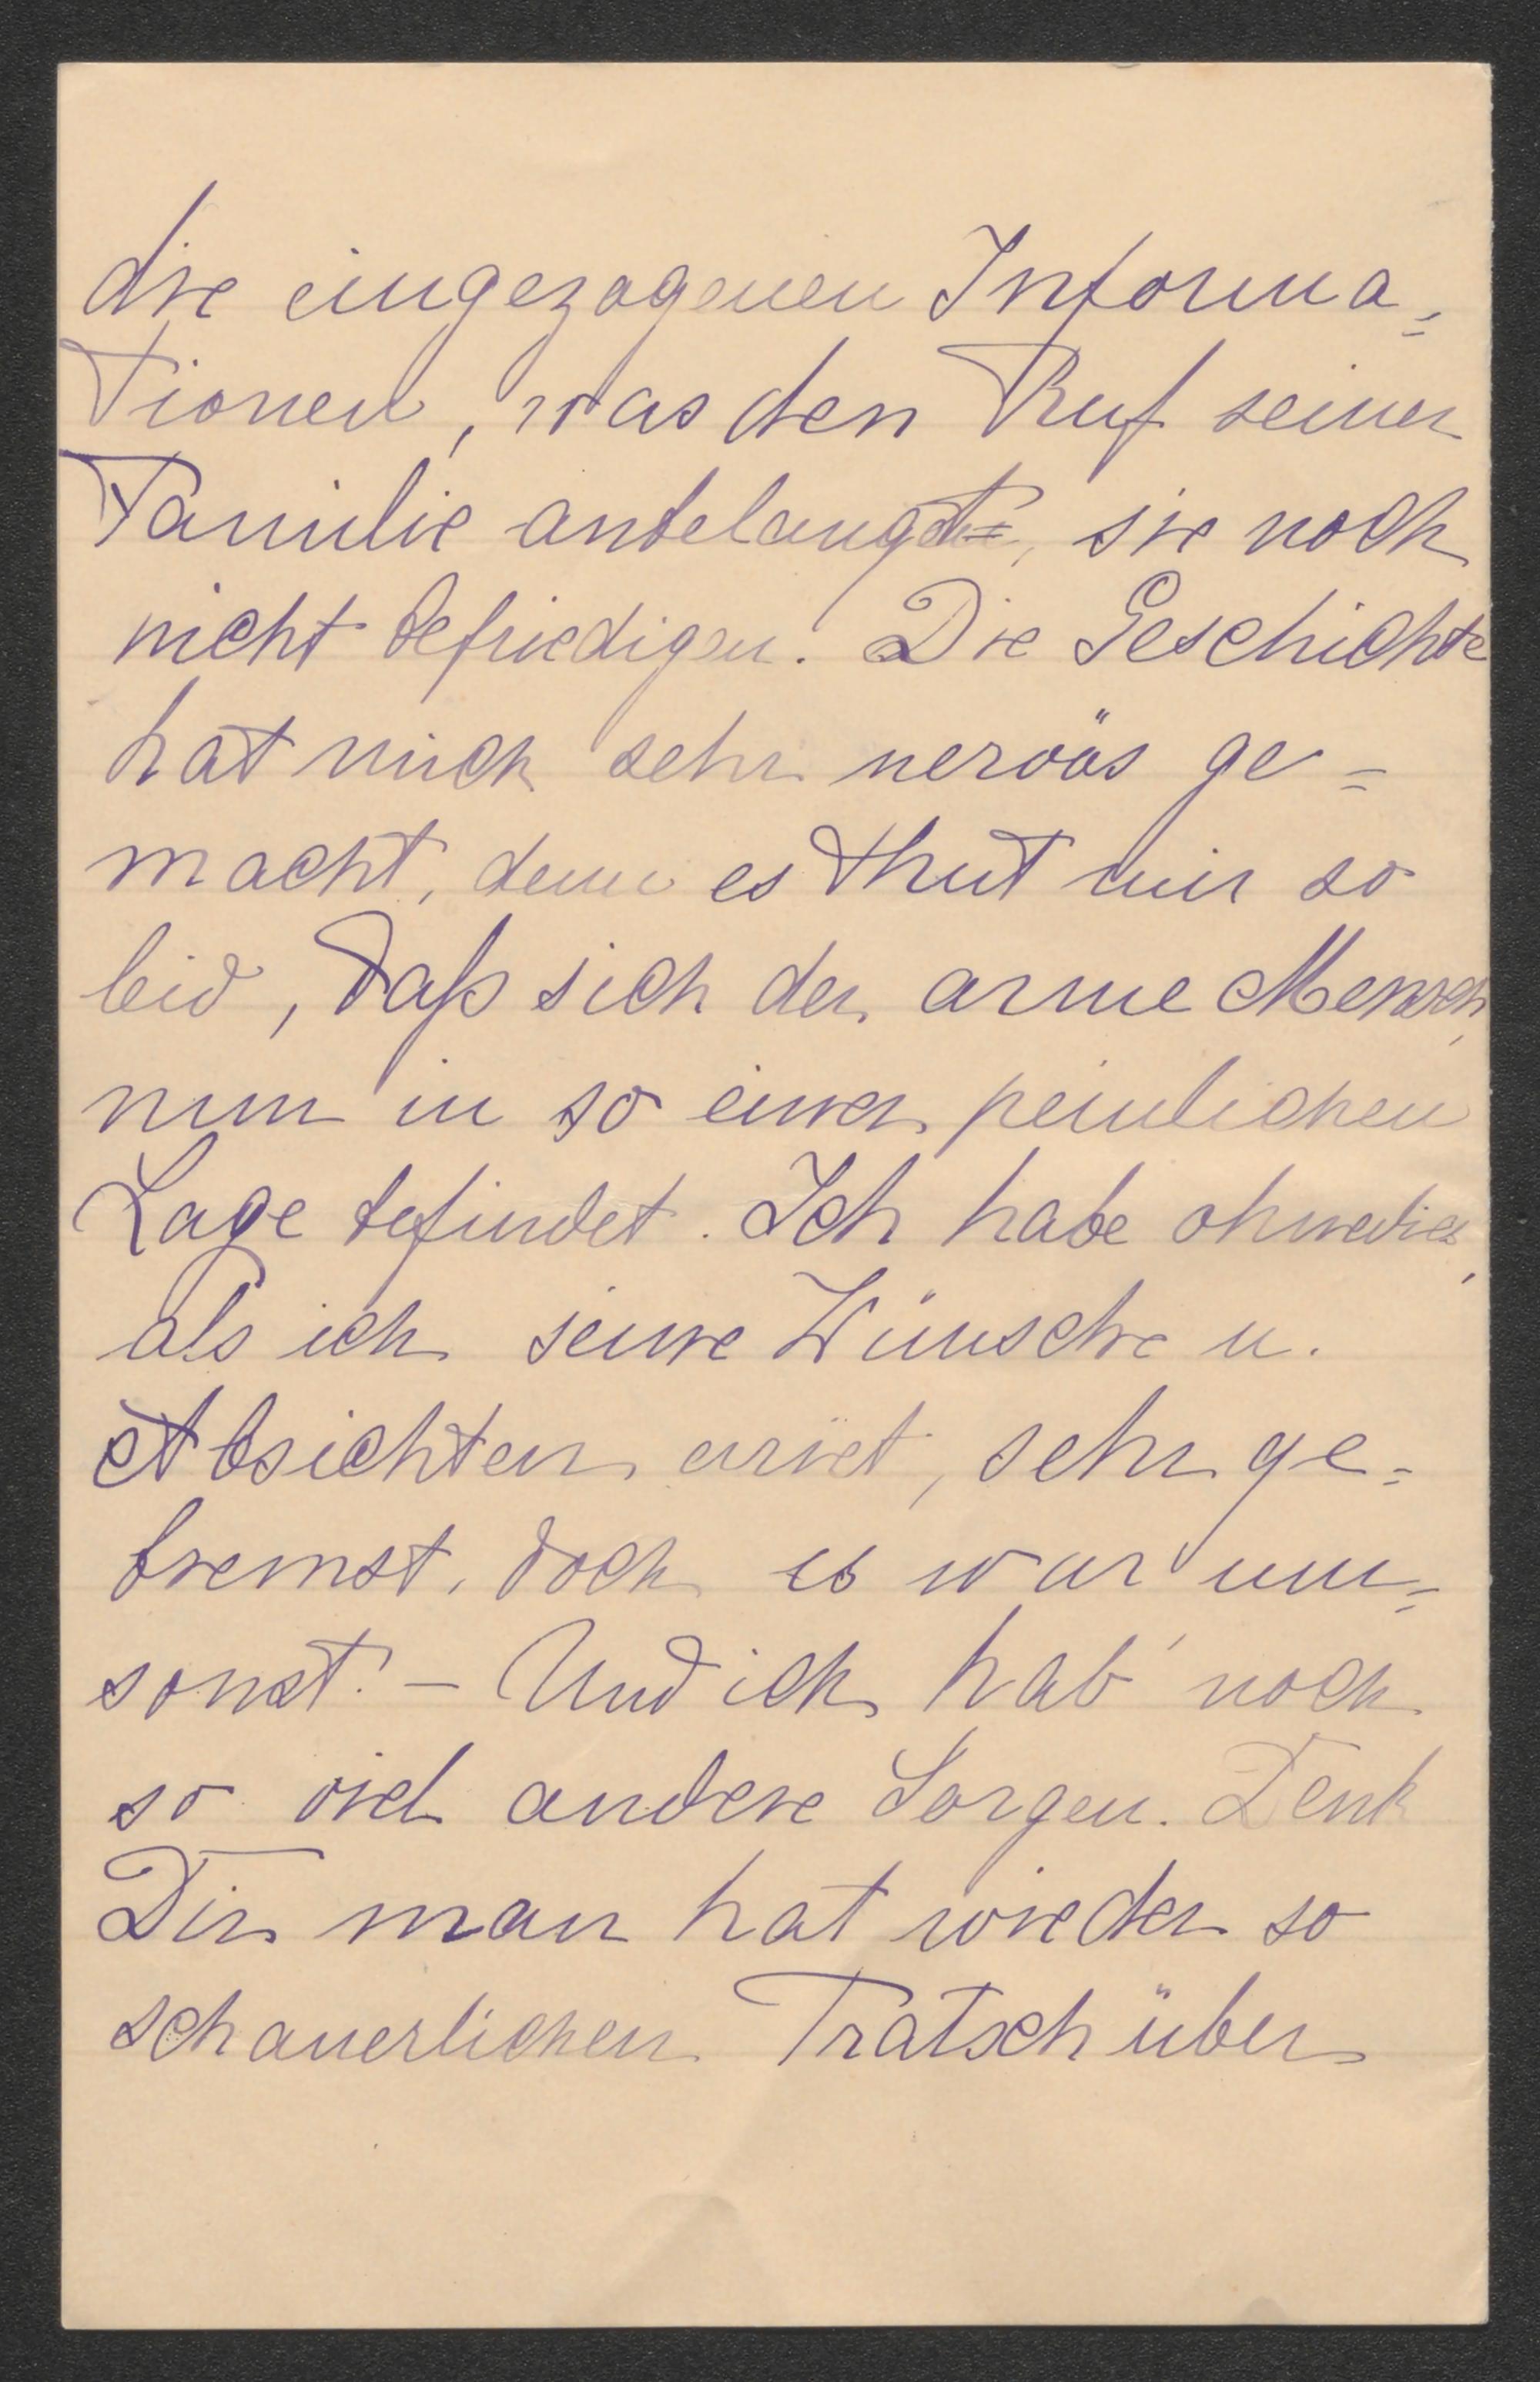 die eingezogenen Informa=
tionen, was den Ruf seiner
Familie anbelangt, sie noch
nicht befriedigen. Die Geschichte
hat mich sehr nervös ge=
macht, denn es thut mir so
leid, daß sich der arme Mensch
nun in so einer peinlichen
Lage befindet. Ich habe ohnedies,
als ich seine Wünsche u.
Absichten erriet, sehr ge=
bremst, doch es war um=
sonst. – Und ich hab' noch
so viel andere Sorgen. Denk
Dir man hat wieder so
schauerlichen Tratsch über